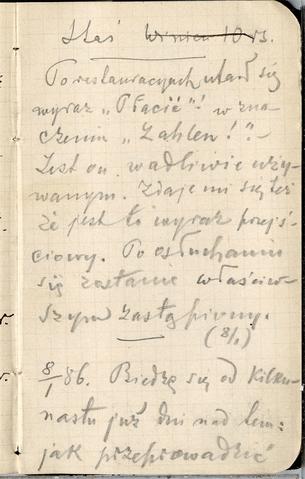 Staś winien 10 rs.
Po restauracyach utarł się
wyraz „Płacić”! w zna
czeniu „Zahlen!”-
Jest on wadliwie uży-
wanym. Zdaje mi się też
że jest to wyraz przejś
ciowy. Po osłuchaniu
się zostanie właściw-
szym zastąpiony.
(8/1)
8/1 86. Biedzę się od kilku-
nastu już dni nad tem:
jak przeprowadzić